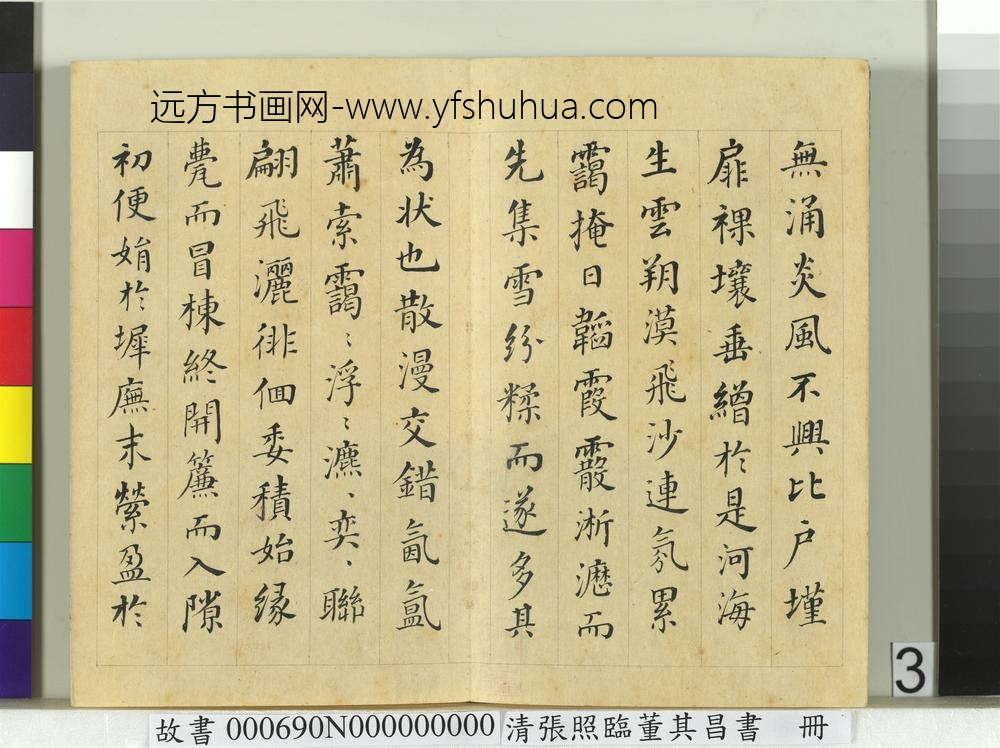 远方书画网-www.yfshuhua.com
無涌炎風不興比户墐
扉裸壤垂繒於是河海
生雲朔漠飛沙連氛累
靄掩日韜霞霰淅瀝而
先集雪紛糅而遂多其
為状也散漫交錯氤氳
蕭索靄〻浮〻瀌〻奕〻聯
翩飛灑徘佪委積始緣
甍而冒棟終開簾而入隙
初便娟於墀廡末縈盈於
3
故書 000690N000000000 清張照臨董其昌書 冊